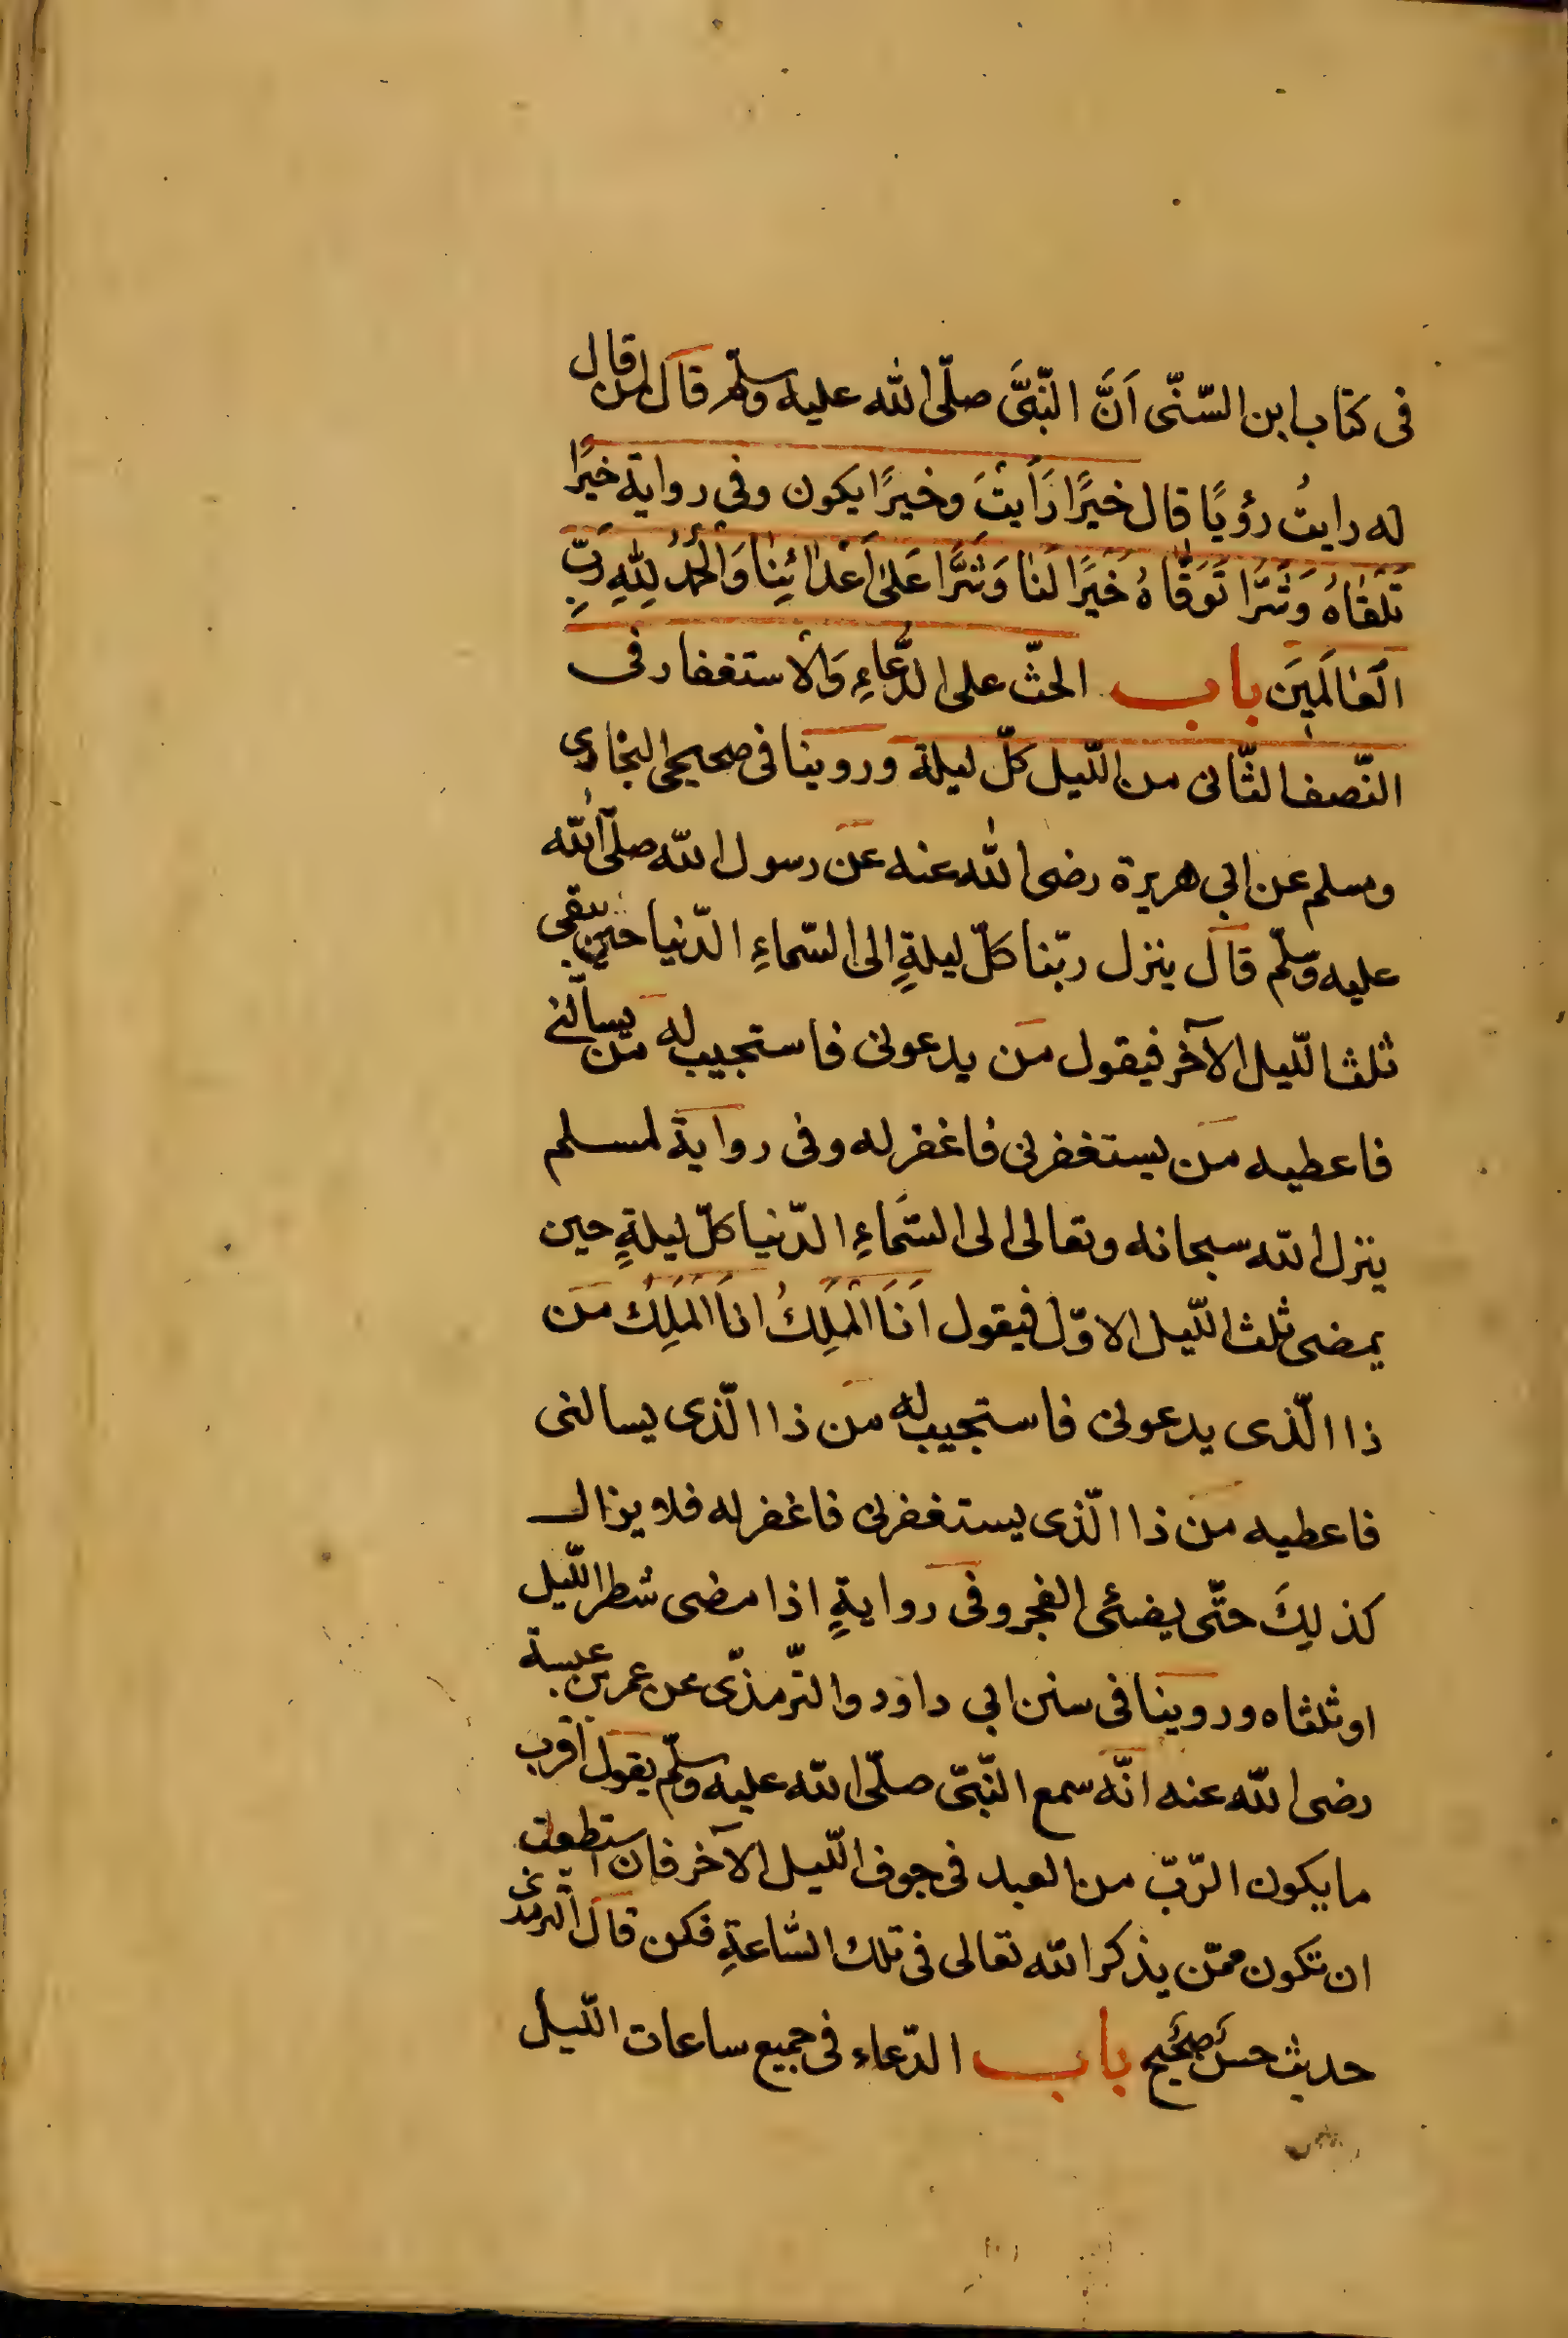 فى كتاب ابن السّنّى اَنَّ النّبىَّ صلّى الله عليه وسلّم قال لمن قال
له رايتُ رؤيًا قال خيرًا رَاَيتَ وخيرًا يكون وفى رواية خيرًا
تَلَقَاهُ وَشَرًّا تَوَقَّاهُ خَيرًا لَنَا وَشَرًّا عَلىٰ اَعْدَائِنَا وَالْحَمْدُ لِلّٰهِ رَبِّ
الْعَالَمِينَ باب الحثّ على الدُّعاءِ وَالاستغفار فى
النّصف الثّانى من اللّيل كلّ ليلة وروينا فى صحيحى البخارى
ومسلم عن ابى هريرة رضى الله عنه عن رسول الله صلّى الله
عليه وسلّم قال ينزل ربّنا كلّ ليلةٍ الى السّماءِ الدّنيا حين يبقى
ثلث اللّيل الآخر فيقول مَن يدعونى فاستجيب له مَن يسألنى
فاعطيه مَن يستغفرنى فاغفر له وفى رواية لمسلم
ينزل الله سبحانه وتعالى الى السَّماءِ الدّنيا كلّ ليلةٍ حين
يمضى ثلث اللّيل الاوّل فيقول اَنَا الْمَلِكُ انَا الْمَلِكُ مَن
ذا الّذى يدعونى فاستجيب له مَن ذا الّذى يسالنى
فاعطيه مَن ذا الّذى يستغفرنى فاغفر له فلا يزال
كذلِكَ حتّى يضئى الفجر وفى روايةٍ اذا مضى شطر اللّيل
او ثلثاه وروينا فى سنن ابى داود والتّرمذّى عن عمر بن عبسة
رضى الله عنه انّه سمع النّبىّ صلّى الله عليه وسلّم يقول اقرب
ما يكون الرّبّ من العبد فى جوف اللّيل الآخر فان استطعت
ان تكون ممّن يذكر الله تعالى فى تلك السَّاعةِ فكن قال الترمذى
حديث حسن صحيح باب الدّعاء فى جميع ساعات اللّيل